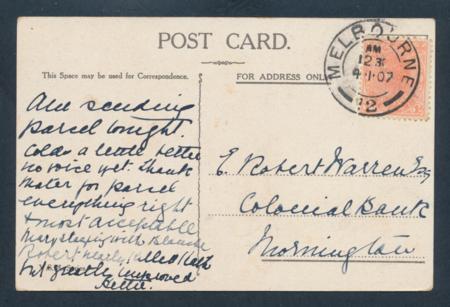 POST CARD.
This Space may be used for Correspondence.
FOR ADDRESS ONLY
MELBOURNE
AM
12 3
4·1·07
2
Am sending
parcel tonight.
Cold a little better
no voice yet. Thank
Mater for parcel
everything right
& most acceptable
Mary staying with Blanche
Robert nearly
but greatly improved
Bettie.
E. Robert Warren Esq
Colonial Bank
Mornington